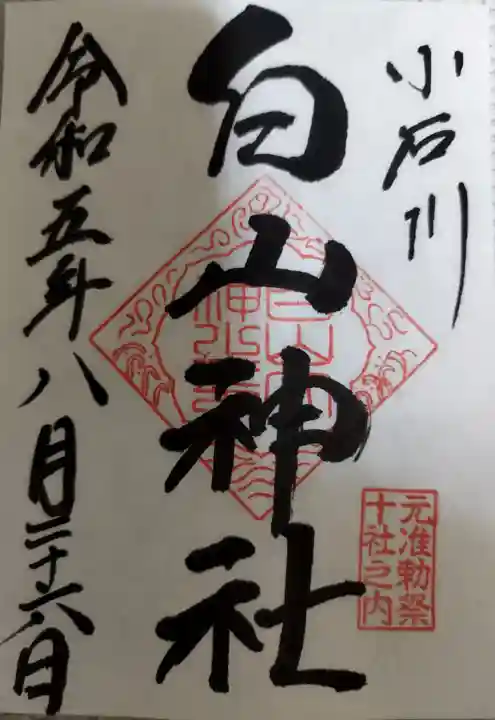 小石川
白山神社
元准勅祭
十社之内
令和五年八月二十六日